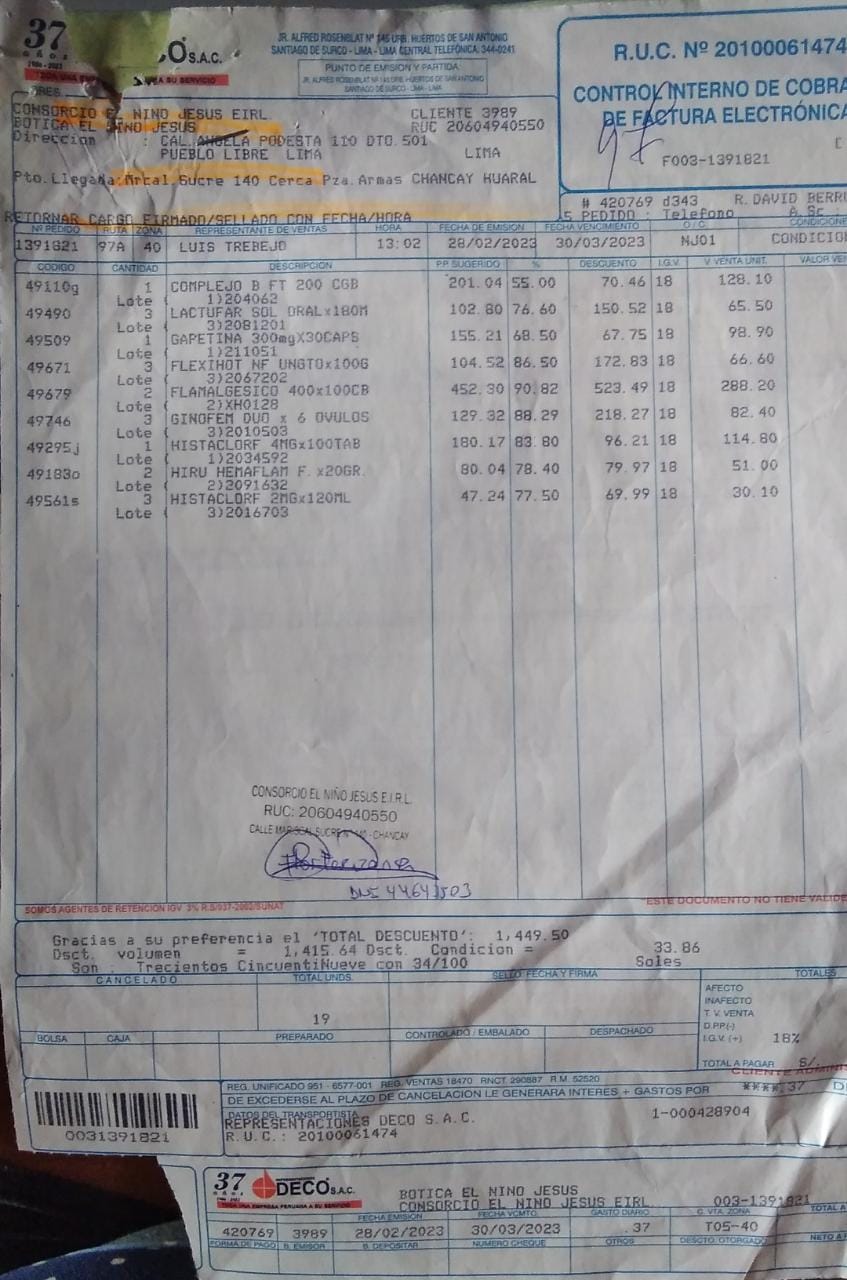 37
AÑOS
1986 - 2023
DECO S.A.C.
A SU SERVICIO
JR. ALFRED ROSENBLAT Nº 145 URB. HUERTOS DE SAN ANTONIO
SANTIAGO DE SURCO - LIMA - LIMA CENTRAL TELEFÓNICA: 344-0241
PUNTO DE EMISIÓN Y PARTIDA:
JR. ALFRED ROSENBLAT Nº 145 URB. HUERTOS DE SAN ANTONIO
SANTIAGO DE SURCO - LIMA - LIMA
R.U.C. Nº 20100061474
CONTROL INTERNO DE COBRA
DE FACTURA ELECTRÓNICA
F003-1391821
CONSORCIO EL NINO JESUS EIRL CLIENTE 3989
BOTICA EL NINO JESUS RUC 20604940550
Direccion : CAL. ANGELA PODESTA 110 DTO.501
PUEBLO LIBRE LIMA LIMA
Pto. Llegada: Mrcal. Sucre 140 Cerca Pza. Armas CHANCAY HUARAL
# 420769 d343 R. DAVID BERRO
PEDIDO : Telefono A. Sc
RETORNAR CARGO FIRMADO/SELLADO CON FECHA/HORA
Nº PEDIDO RUTA ZONA REPRESENTANTE DE VENTAS HORA FECHA DE EMISION FECHA VENCIMIENTO O / C CONDICIONE
1391821 97A 40 LUIS TREBEJO 13:02 28/02/2023 30/03/2023 NJ01 CONDICIO
CODIGO CANTIDAD DESCRIPCION P.P. SUGERIDO % DESCUENTO I.G.V. V. VENTA UNIT. VALOR VE
49110g 1 COMPLEJO B FT 200 CGB 201.04 55.00 70.46 18 128.10
Lote ( 1)204062
49490 3 LACTUFAR SOL ORALx180M 102.80 76.60 150.52 18 65.50
Lote ( 3)2081201
49509 1 GAPETINA 300mgX30CAPS 155.21 68.50 67.75 18 98.90
Lote ( 1)211051
49671 3 FLEXIHOT NF UNGTOx100G 104.52 86.50 172.83 18 66.60
Lote ( 3)2067202
49679 2 FLAMALGESICO 400x100CB 452.30 90.82 523.49 18 288.20
Lote ( 2)XH0128
49746 3 GINOFEM DUO x 6 OVULOS 129.32 88.29 218.27 18 82.40
Lote ( 3)2010503
49295j 1 HISTACLORF 4MGx100TAB 180.17 83.80 96.21 18 114.80
Lote ( 1)2034592
49183o 2 HIRU HEMAFLAM F. x20GR. 80.04 78.40 79.97 18 51.00
Lote ( 2)2091632
49561s 3 HISTACLORF 2MGx120ML 47.24 77.50 69.99 18 30.10
Lote ( 3)2016703
CONSORCIO EL NIÑO JESUS E.I.R.L.
RUC: 20604940550
CALLE MARISCAL SUCRE Nº 140 - CHANCAY
SOMOS AGENTES DE RETENCION IGV 3% R.S/037-2002/SUNAT
"ESTE DOCUMENTO NO TIENE VALIDE
Gracias a su preferencia el 'TOTAL DESCUENTO': 1,449.50
Dsct. volumen = 1,415.64 Dsct. Condicion = 33.86
Son : Trecientos CincuentiNueve con 34/100 Soles
CANCELADO TOTAL UNDS. SELLO FECHA Y FIRMA TOTALES
19
AFECTO
INAFECTO
T. V. VENTA
D.PP.(-)
I.G.V. (+) 18%
TOTAL A PAGAR S/.
BOLSA CAJA PREPARADO CONTROLADO / EMBALADO DESPACHADO
REG. UNIFICADO 951 - 6577-001 REG. VENTAS 18470 RNCT. 290887 R.M. 52520
DE EXCEDERSE AL PLAZO DE CANCELACION LE GENERARA INTERES + GASTOS POR ****.37
0031391821
DATOS DEL TRANSPORTISTA
REPRESENTACIONES DECO S.A.C. 1-000428904
R.U.C.: 20100061474
37
AÑOS
DECO S.A.C.
TODA UNA EMPRESA PERUANA A SU SERVICIO
BOTICA EL NINO JESUS
CONSORCIO EL NINO JESUS EIRL 003-1391821
FECHA EMISIÓN FECHA VCMTO. GASTO DIARIO C. VTA. ZONA TOTAL A
420769 3989 28/02/2023 30/03/2023 .37 T05-40
FORMA DE PAGO B. EMISOR B. DEPOSITAR NUMERO CHEQUE OTROS DESCTO. OTORGADO NETO A